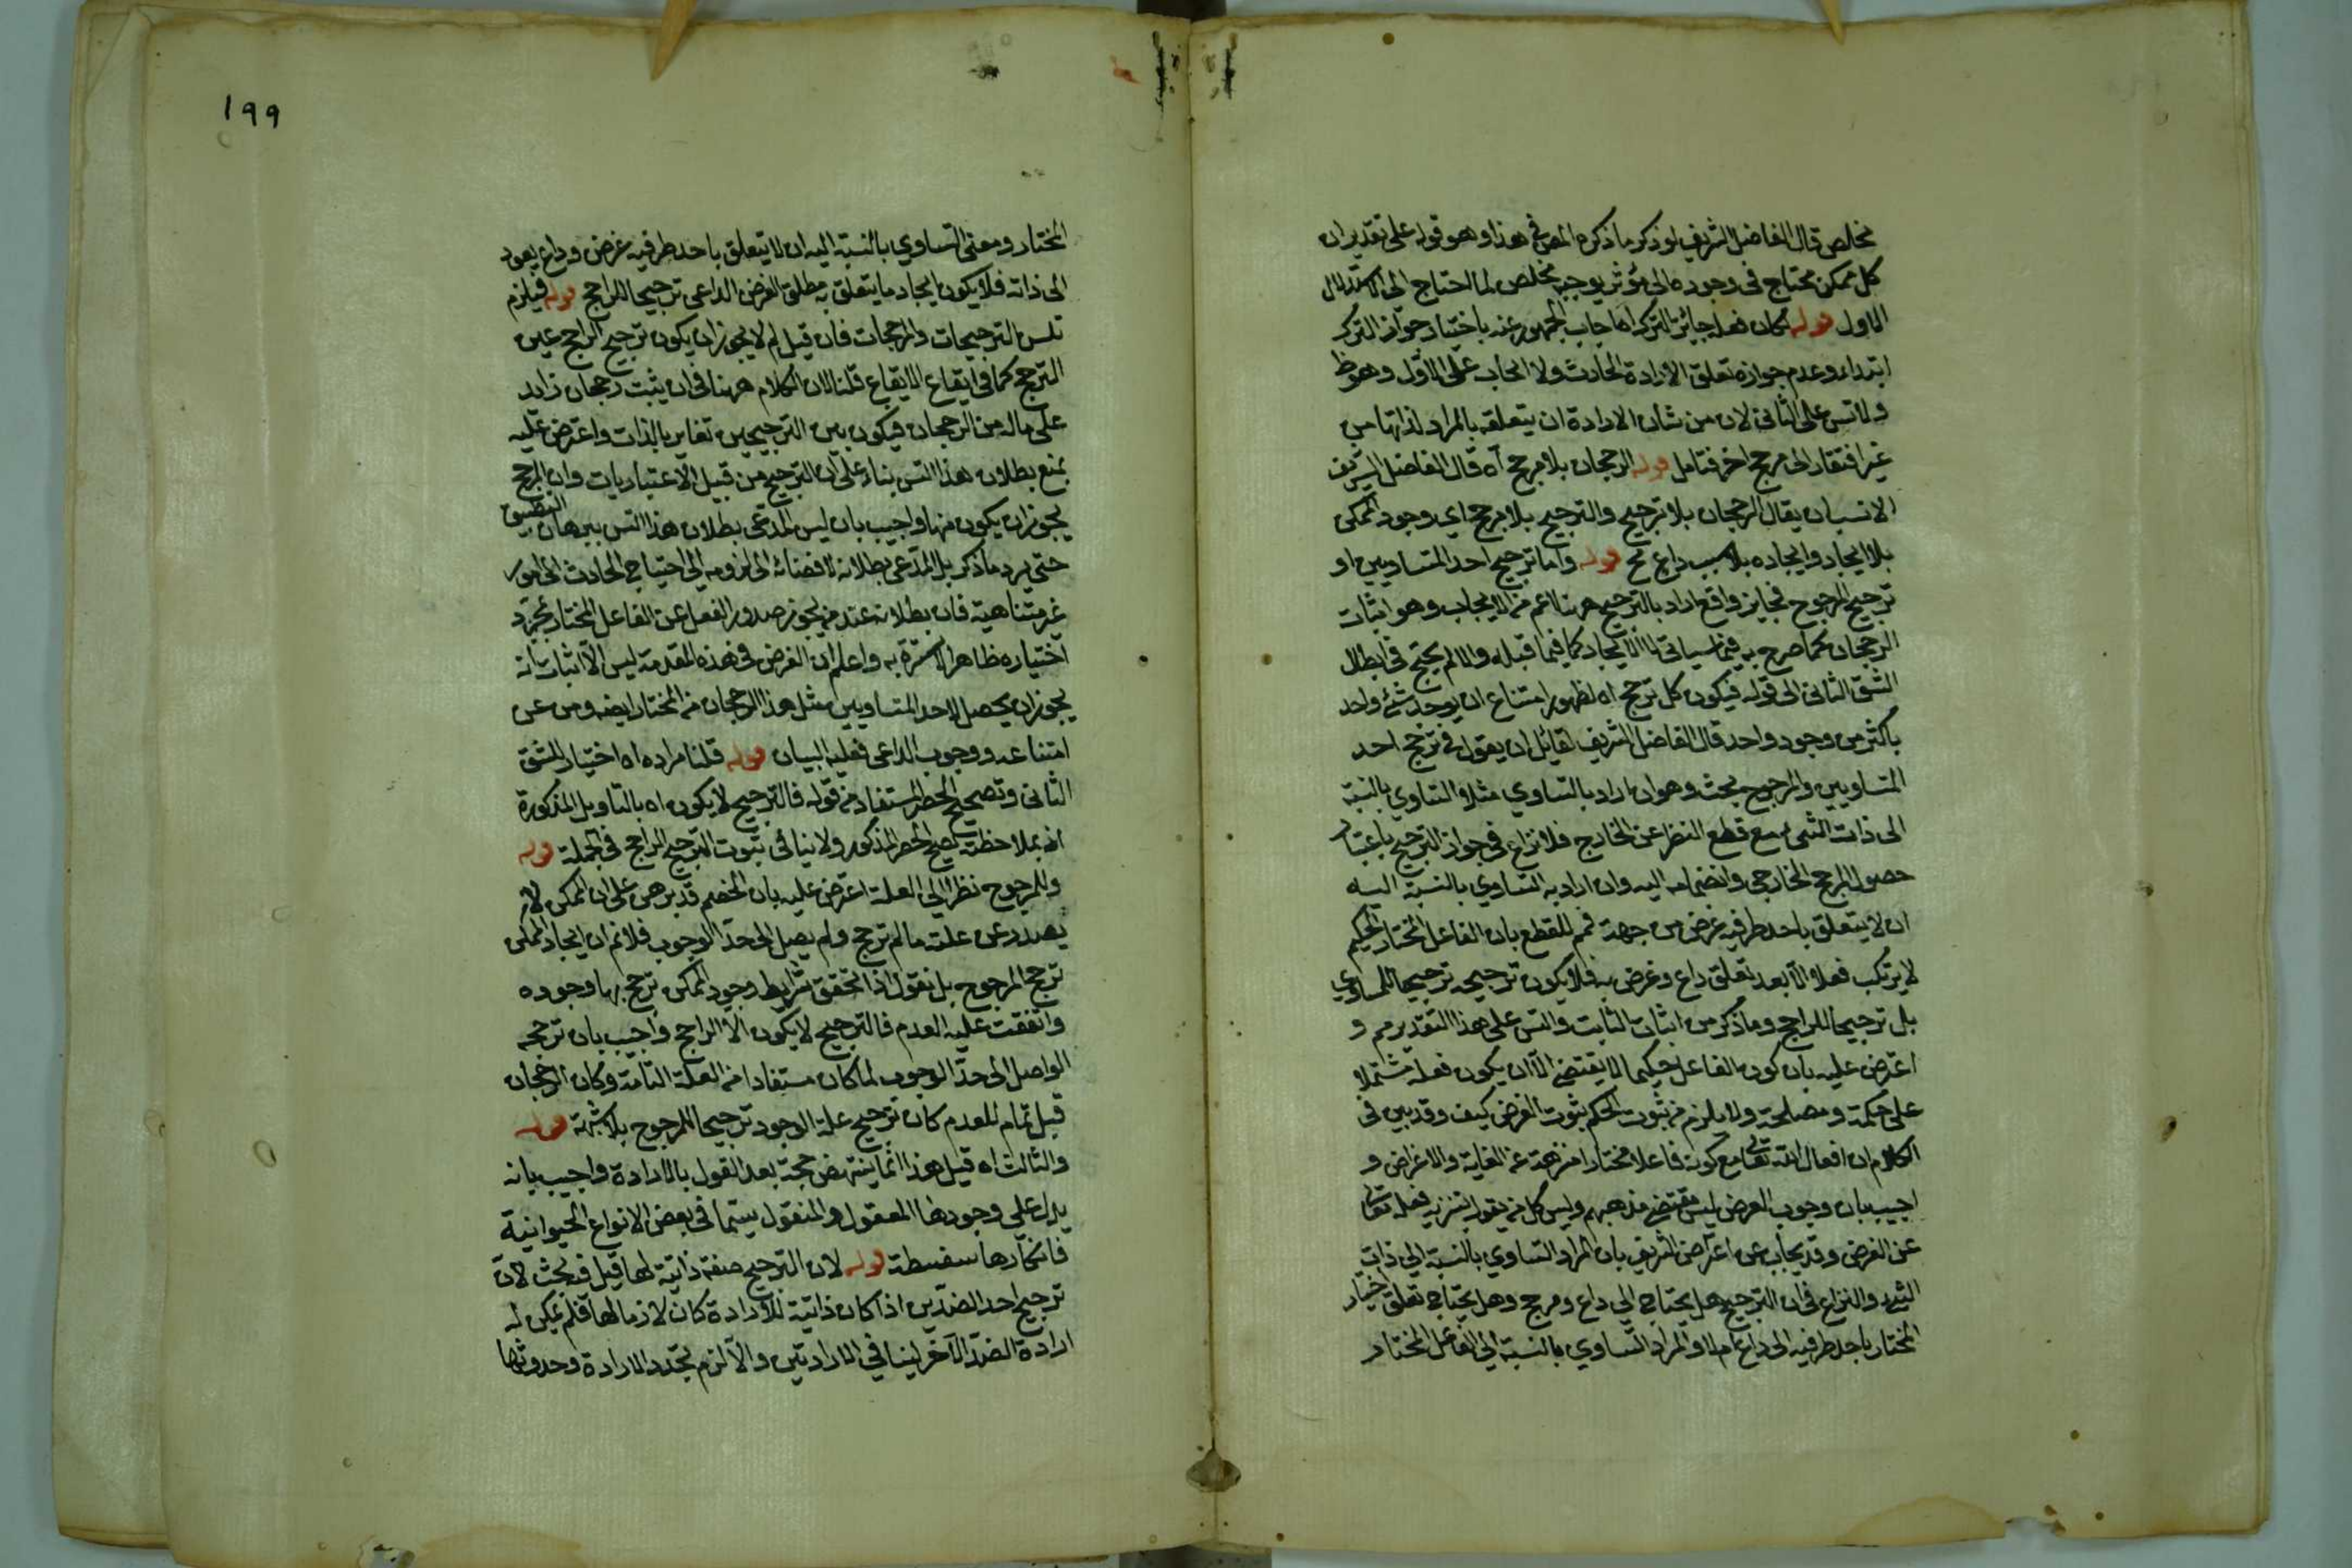 مخلص قال الفاضل الشريف لو ذكر ما ذكره المص في هذا وهو قوله على تقدير ان
كل ممكن محتاج في وجوده الى مؤثر يوجبه مخلص لما احتاج الى الاستدلال
الاول قوله لكان فعله جائز الترك اه اجاب الجمهور عنه باختيار جواز الترك
ابتداء وعدم جوازه تعلق الارادة الحادث ولا ايجاب على الاول وهو ظ
ولا تس على الثاني لان من شان الارادة ان يتعلقه بالمراد لذاتها من
غير افتقار الى مرجح اخر فتامل قوله الرجحان بلا مرجح اه قال الفاضل الشريف
الانسب ان يقال الرجحان بلا ترجيح والترجيح بلا مرجح اي وجود الممكن
بلا ايجاد وايجاده بلا سبب داع مح قوله واما ترجيح احد المتساويين او
ترجيح المرجوح فجايز واقع اراد بالترجيح ههنا اعم من الايجاب وهو اثبات
الرجحان كما صرح به فيما سياتي لا الايجاد كما فيما قبله والا لم يحتج في ابطال
الشق الثاني الى قوله فيكون كل ترجيح اه لظهور امتناع ان يوجد شئ واحد
باكثر من وجود واحد قال الفاضل الشريف لقائل ان يقول في ترجيح احد
المتساويين والمرجوح بحث وهو ان اراد بالتساوي مثلا التساوي بالنسبة
الى ذات الشئ مع قطع النظر عن الخارج فلا نزاع في جواز الترجيح باعتبار
حصول المرجح الخارجي وانضمامه اليه وان اراد به التساوي بالنسبة اليه
ان لا يتعلق باحد طرفيه غرض من جهة فمم للقطع بان الفاعل المختار الحكيم
لا يرتكب فعلا الا بعد تعلق داع وغرض به فلا يكون ترجيحه ترجيحا للمساوي
بل ترجيحا للراجح وما ذكر من اثبات الثابت والتس على هذا التقدير مم و
اعترض عليه بان كون الفاعل حكيما لا يقتضي الا ان يكون فعله مشتملا
على حكمة ومصلحة ولا يلزم من ثبوت الحكم ثبوت الغرض كيف وقد بين في
الكلام ان افعال الله تعالى مع كونه فاعلا مختارا منزهة عن الغاية والاغراض و
اجيب بان وجوب الغرض ليس مقتضى مذهبهم وليس كل من يقول بتنزيه فعله تعالى
عن الغرض وقد يجاب عن اعتراض الشريف بان المراد التساوي بالنسبة الى ذات
الشئ والنزاع في ان الترجيح هل يحتاج الى داع ومرجح وهل يحتاج تعلق اختيار
المختار باحد طرفيه الى داع ام لا والمراد التساوي بالنسبة الى الفاعل المختار
١٩٩
المختار ومعنى التساوي بالنسبة اليه ان لا يتعلق باحد طرفيه غرض وداع يعود
الى ذاته فلا يكون ايجاد ما يتعلق به مطلق الغرض الداعي ترجيحا للراجح قوله فيلزم
تلس الترجيحات والمرجحات فان قيل لم لا يجوز ان يكون ترجيح الراجح عين
الترجح كما في ايقاع الايقاع قلنا لان الكلام ههنا في ان يثبت رجحان زايد
على ماله من الرجحان فيكون بين الترجيحين تغاير بالذات واعترض عليه
بمنع بطلان هذا التس بناء على ان الترجيح من قبيل الاعتباريات وان المرجح
يجوز ان يكون منها واجيب بان ليس المدعى بطلان هذا التس ببرهان التطبيق
حتى يرد ما ذكر بل المدعى بطلانه لافضائه الى لزومه الى احتياج الحادث الى امور
غير متناهية فان بطلانه عند من يجوز صدور الفعل عن الفاعل المختار بمجرد
اختياره ظاهر لاسترة به واعلم ان الغرض في هذه المقدمة ليس الا اثبات انه
يجوز ان يحصل لاحد المتساويين مثل هذا الرجحان من المختار ايضه ومن عن
امتناعه ووجوب الداعي فعليه البيان قوله قلنا مراده اه اختيار للشق
الثاني وتصحيح الحصر المستفاد من قوله فالترجيح لا يكون اه بالتاويل المذكورة
اذ بملاحظته يصح الحصر المذكور ولا ينافي ثبوت الترجيح الراجح في الجملة قوله
والمرجوح نظرا الى العلة اعترض عليه بان الخصم قد برهن على ان الممكن لا
يصدر عن علته ما لم ترجح ولم يصل الى حد الوجوب فلا نم ان ايجاد الممكن
ترجيح المرجوح بل نقول اذا تحقق شرايط وجود الممكن ترجح بها وجوده
وانفقت عليه العدم فالترجيح لا يكون الا الراجح واجيب بان ترجحه
الواصل الى حد الوجوب لما كان مستفادا من العلة التامة وكان الرجحان
قبل تمام للعدم كان ترجيح علة الوجود ترجيحا للمرجوح بلا شبهة قوله
والثالث اه قيل هذا انما ينتهض حجة بعد القول بالارادة واجيب بانه
يدل على وجودها المعقول والمنقول سيما في بعض الانواع الحيوانية
فانكارها سفسطة قوله لان الترجيح صفة ذاتية لها قيل فيه بحث لان
ترجيح احد الضدين اذا كان ذاتية للارادة كان لازما لها فلم يمكن له
ارادة الضد الاخر لتنافي الارادتين والا لزم تجدد الارادة وحدوثها